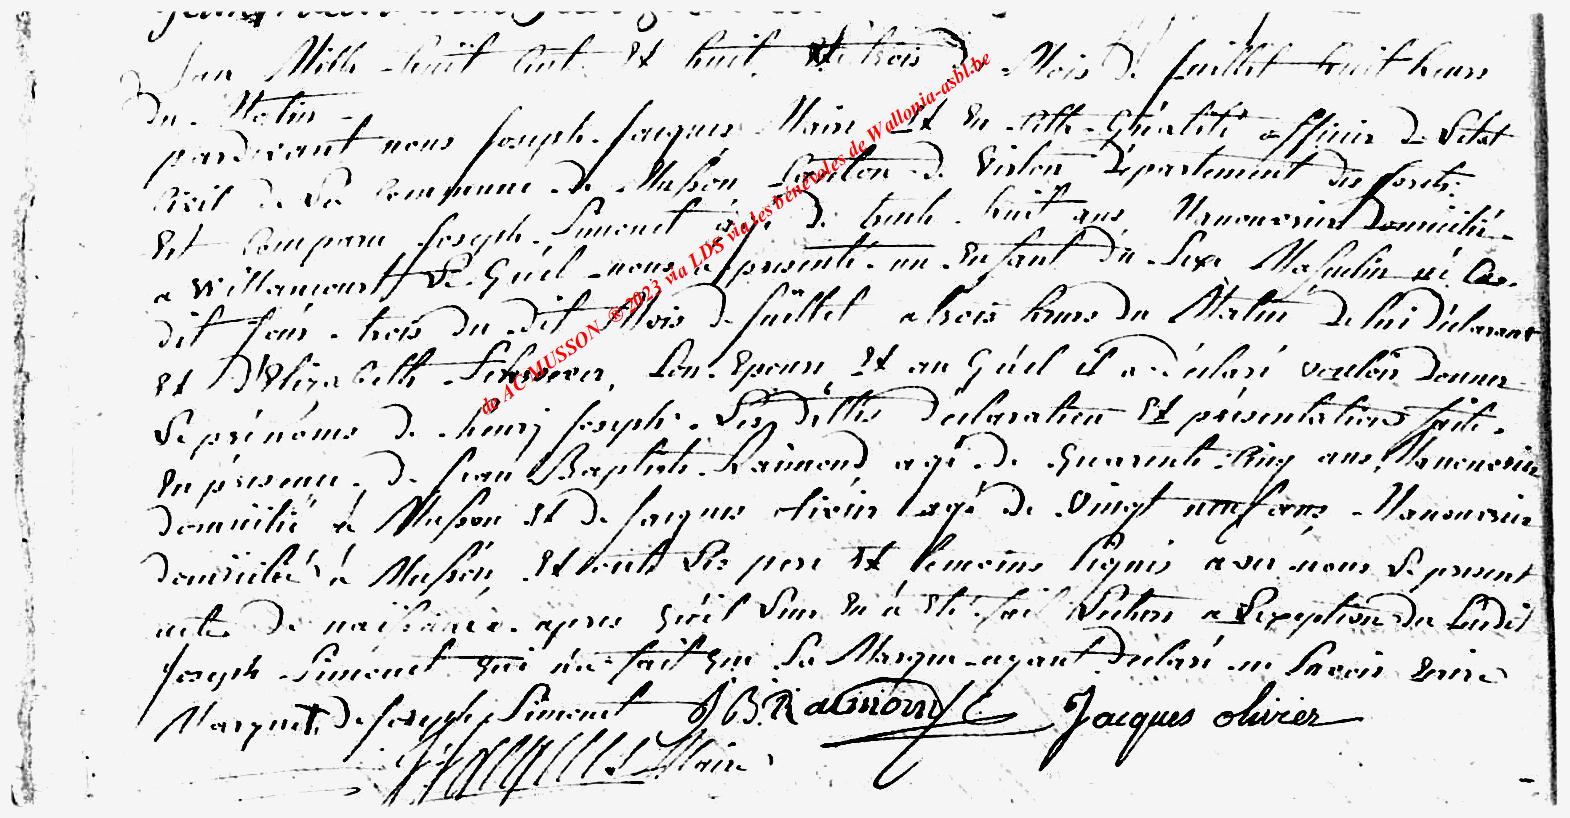 L'an Mille huit Cent Et huit Le trois du Mois de juillet huit heures
du Matin
pardevant nous Joseph Jacques Maire Et En cette Qualité officier de L'Etat
Civil de La Commune de Musson Canton de Virton Département des forets
Est Comparu Joseph Simonet âgé de trente huit ans Manouvrier Domicilié
a Willancourt Le Quel nous a présenté un Enfant du Sexe Masculin né Ce
dit jour trois du dit Mois de juillet a trois heures du Matin De lui Déclarant
Et D'Elizabeth Son Epouse, Et au Quel il a déclaré vouloir Donner
Le prénoms de henrij Joseph. Les dittes déclaration Et présentations faite
En présence de Jean Baptiste Raimond agé de Quarente Cinq ans Manouvrier
domicilié à Musson Et de Jacques olivier agé de Vingt neuf ans Manouvrier
domicilié à Musson, Et ont Les pere Et temoins signés avec nous Le present
acte De naissance apres Qu'il Leur En à Eté fait Lecture a L'exception du Ludit
Joseph Simonet Qui n'a fait Que Sa Marque ayant Declaré ne Savoir Ecrire
Marque + de Joseph Simonet J B Raimond Jacques olivier
Maire
de AC MUSSON ®2023 via LDS via les bénévoles de Wallonia-asbl.be